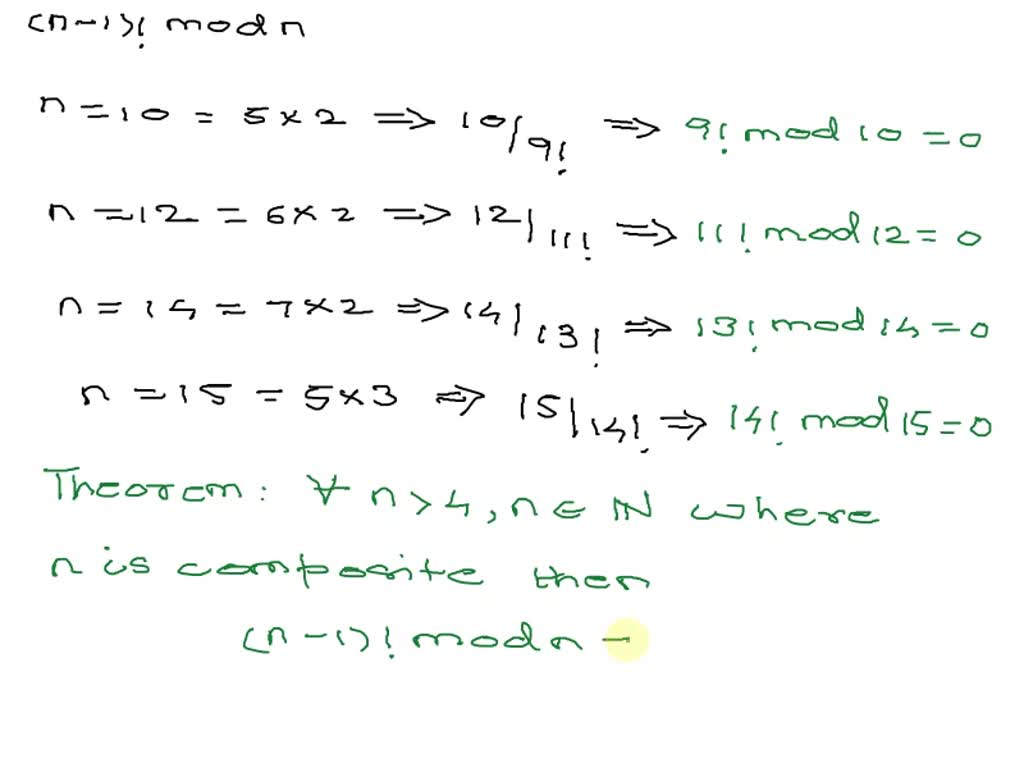 (n-1)! mod n
n = 10 = 5 × 2 ⇒ 10/9! ⇒ 9! mod 10 = 0
n = 12 = 6 × 2 ⇒ 12|11! ⇒ 11! mod 12 = 0
n = 14 = 7 × 2 ⇒ 14|13! ⇒ 13! mod 14 = 0
n = 15 = 5 × 3 ⇒ 15|14! ⇒ 14! mod 15 = 0
Theorem: ∀ n > 4, n ∈ ℕ where
n is composite then
(n-1)! mod n -